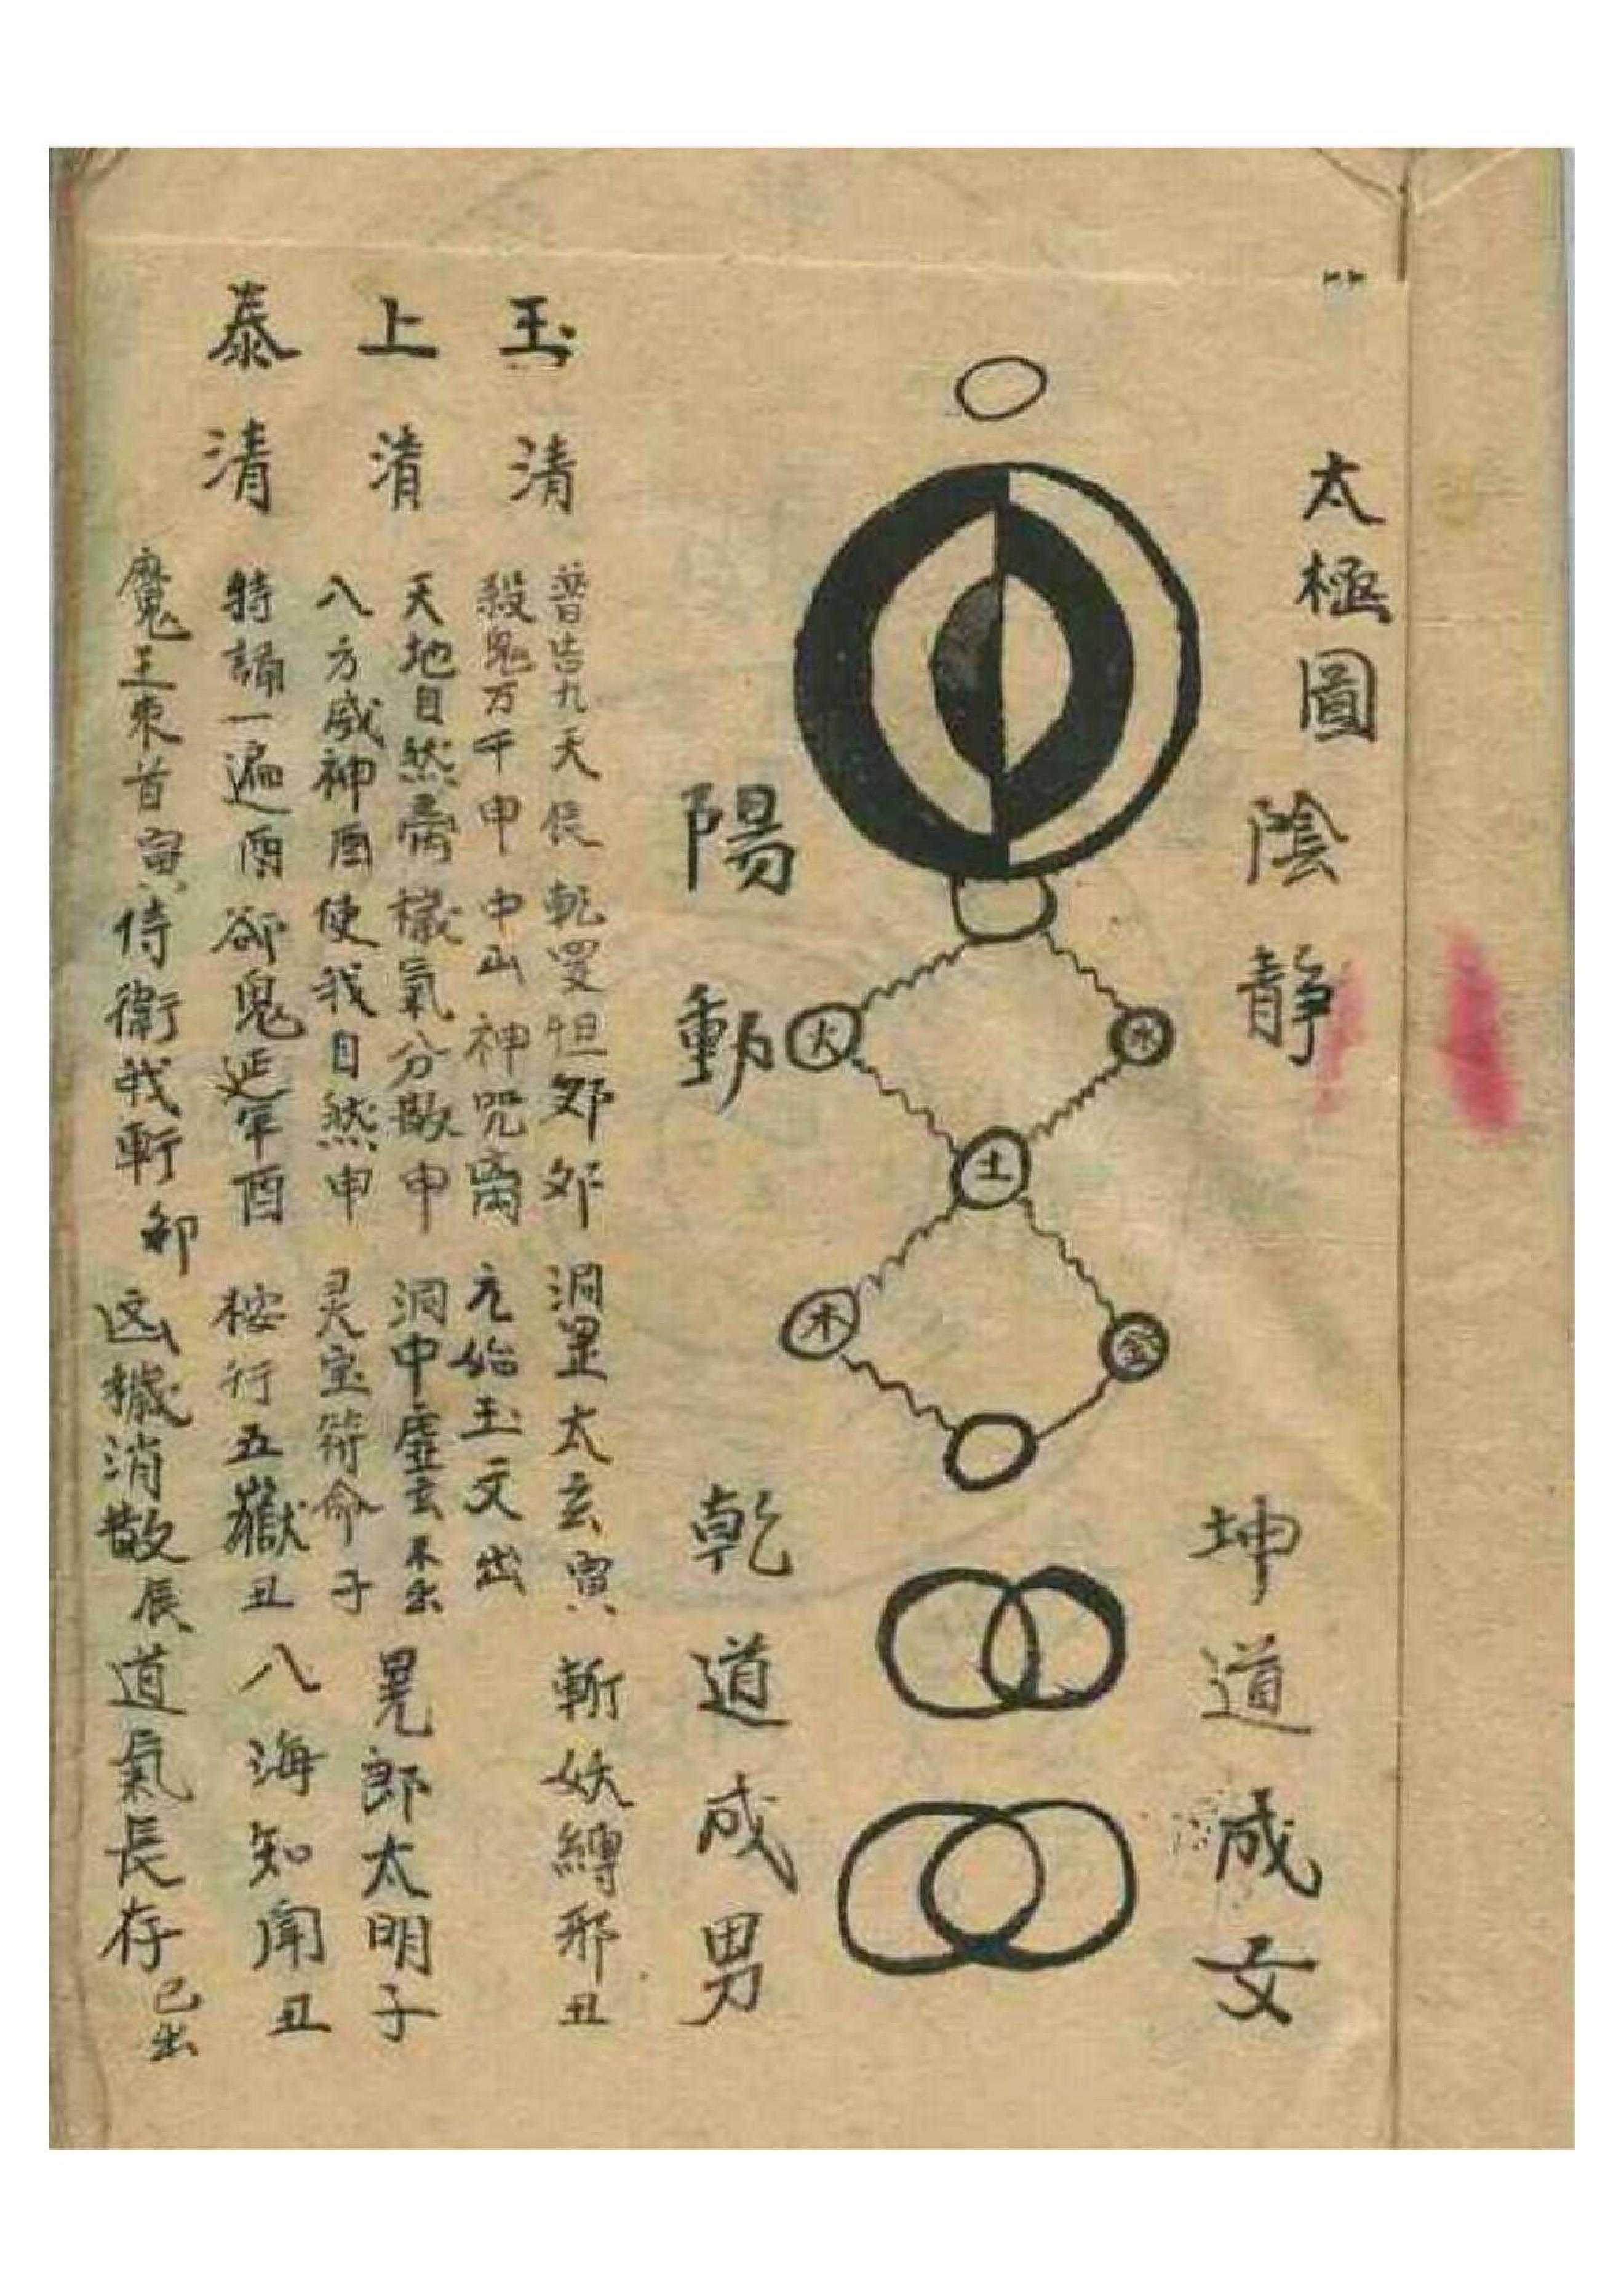 太極圖
陰靜
陽動
火
水
土
木
金
坤道成女
乾道成男
玉清
上清
泰清
普告九天辰 乾旻怛郊 洞罡太玄寅 斬妖縛邪丑
殺鬼万千申 中山神咒离 元始玉文出
天地自然离 穢氣分散申 洞中虛玄未出 晃郎太明子
八方威神酉 使我自然申 灵宝符命子
特誦一遍酉 郤鬼延年酉 桉行五嶽丑 八海知聞丑
魔王束首寅 侍衛我軒卯 凶穢消散辰 道氣長存已出